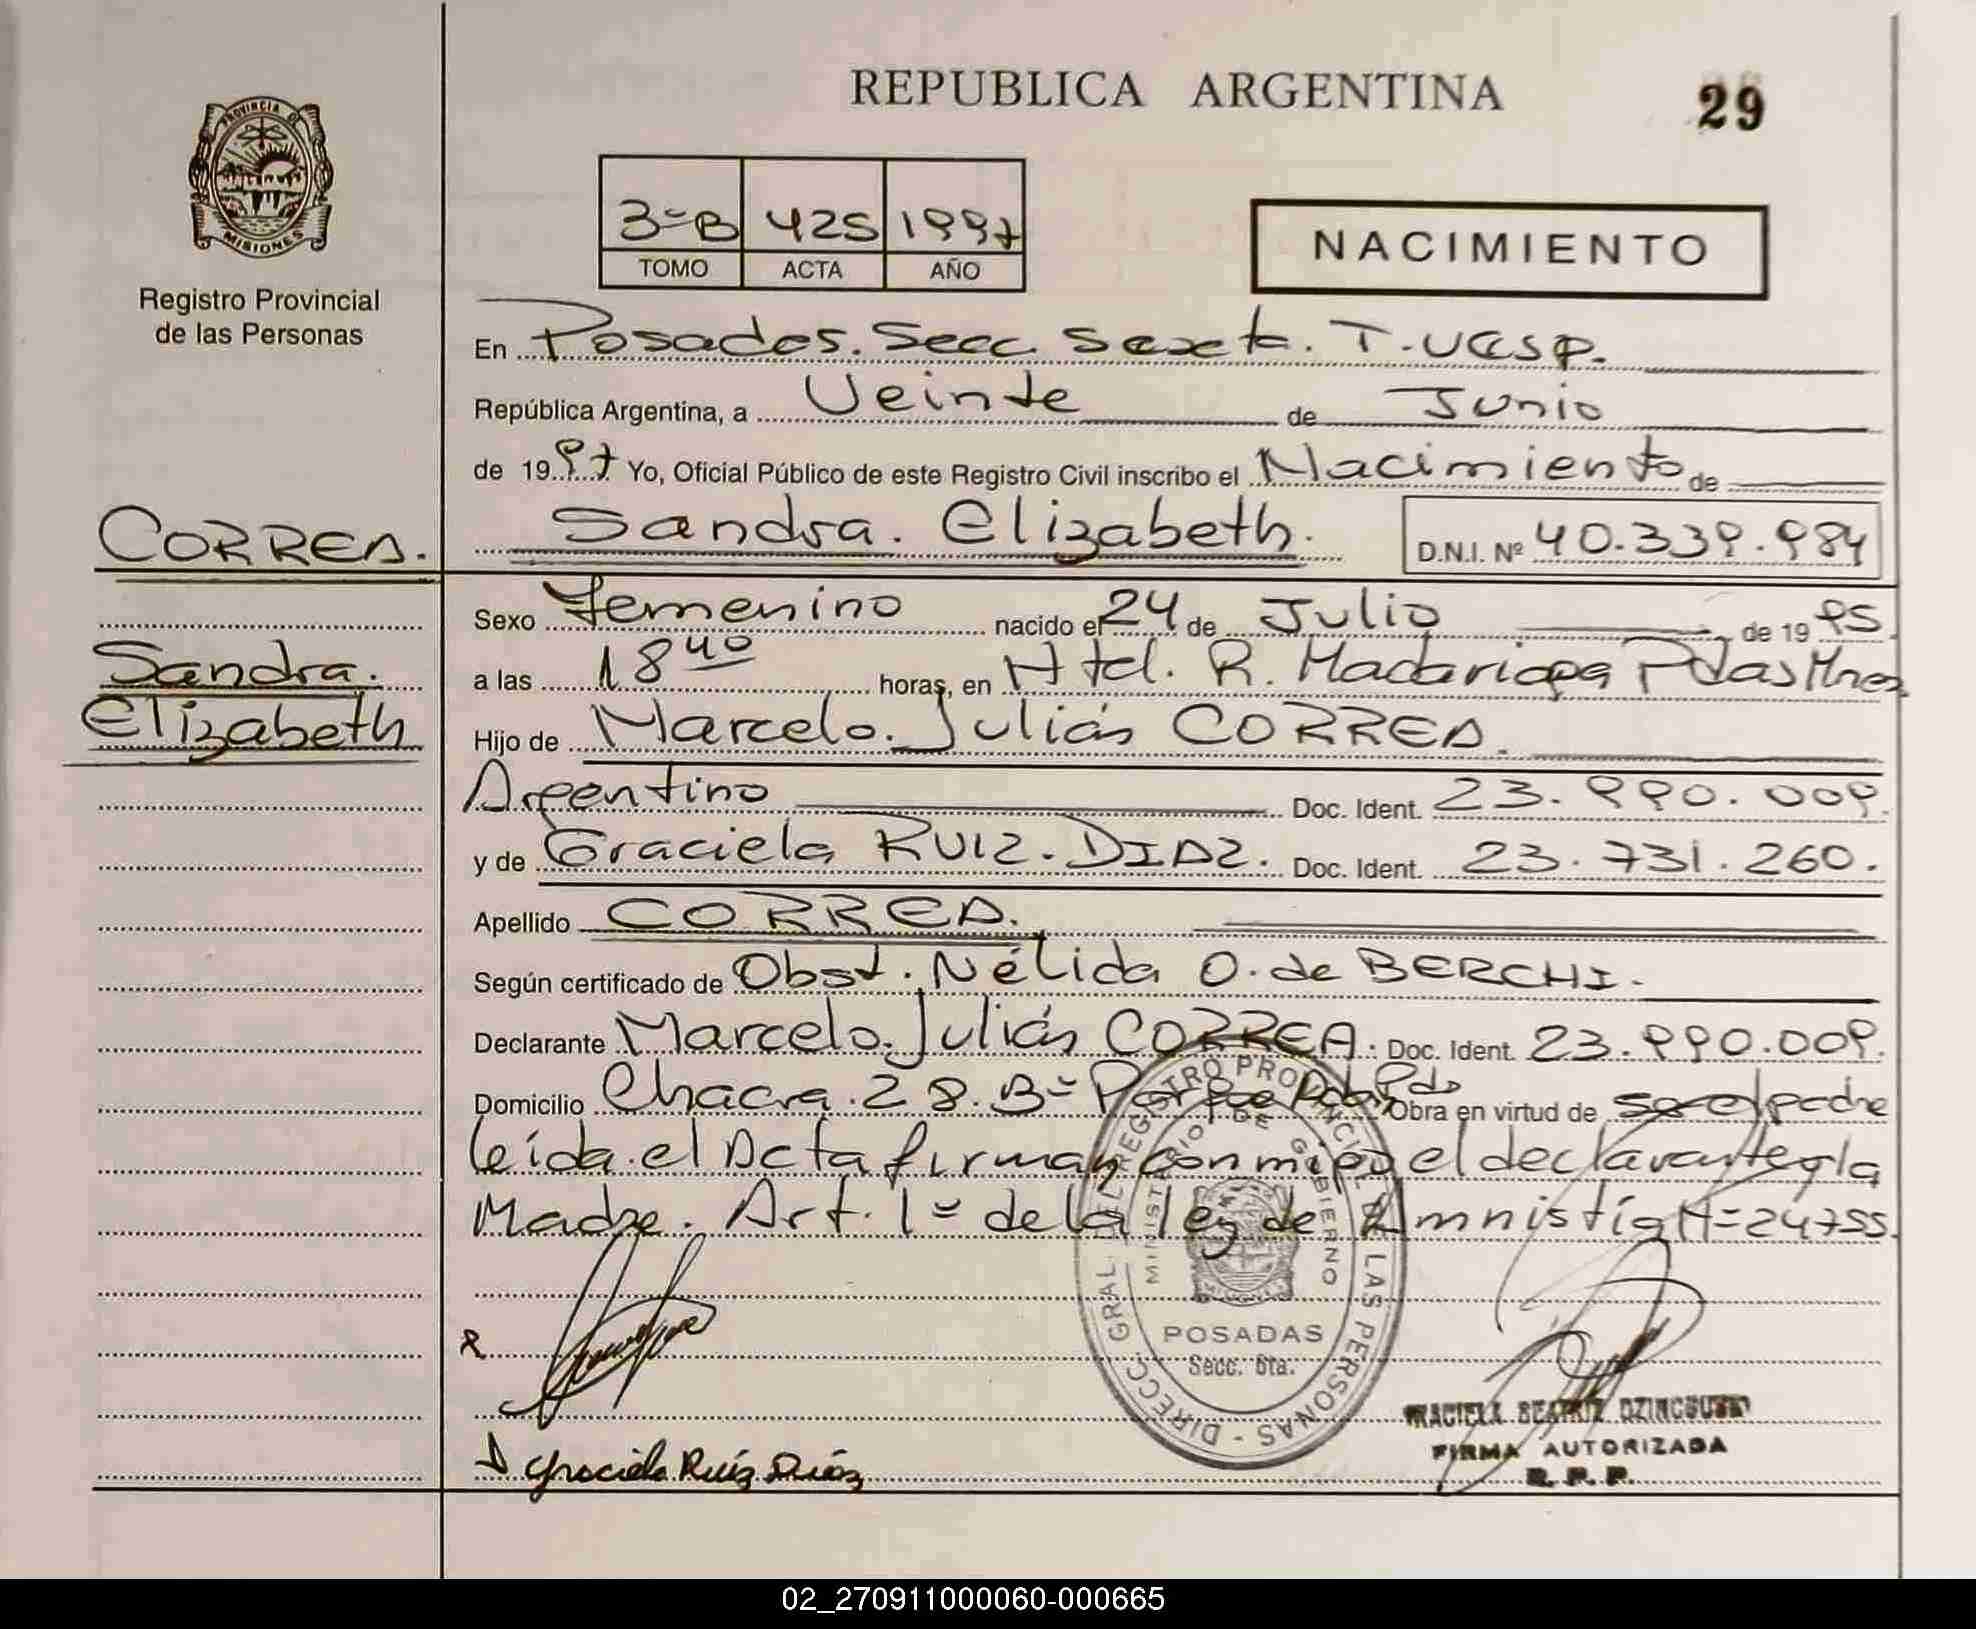 REPUBLICA ARGENTINA
29
PROVINCIA DE
MISIONES
Registro Provincial
de las Personas
3º B 425 1997
TOMO ACTA AÑO
NACIMIENTO
En Posadas. Secc. Sexta.
República Argentina, a Veinte de Junio
de 1997 Yo, Oficial Público de este Registro Civil inscribo el Nacimiento de
CORREA.
Sandra. Elizabeth.
D.N.I. Nº 40.339.984
Sandra.
Elizabeth
Sexo Femenino nacido el 24 de Julio de 1995
a las 18 40 horas, en Htal. R. Madariaga Pdas Mnes
Hijo de Marcelo. Julián CORREA.
Argentino Doc. Ident. 23.990.009.
y de Graciela RUIZ. DIAZ. Doc. Ident. 23.731.260.
Apellido CORREA.
Según certificado de Obst. Nélida O. de BERCHI.
Declarante Marcelo. Julián CORREA. Doc. Ident. 23.990.009.
Domicilio Chacra. 28. Bº Obra en virtud de ser el padre
leída el Acta firman conmigo el declarante y la
Madre. Art. 1º de la ley de Amnistía Nº 24755.
DIRECC. GRAL. DEL REGISTRO PROVINCIAL DE LAS PERSONAS -
MINISTERIO DE GOBIERNO
POSADAS
Secc. 6ta.
Graciela Ruiz Diaz
GRACIELA BEATRIZ
FIRMA AUTORIZADA
R. P. P.
02_270911000060-000665